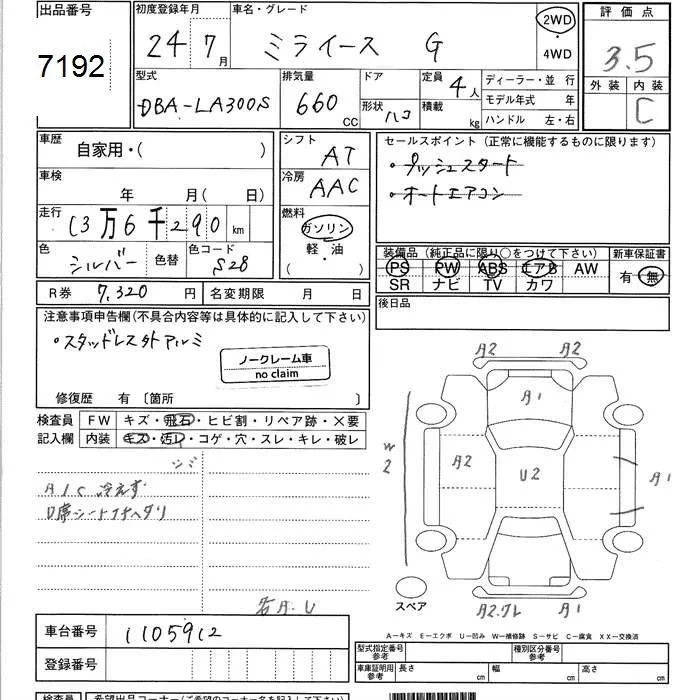 出品番号
7192
初度登録年月
24 7月
車名・グレード
ミライース G
2WD
・
4WD
評価点
3.5
外装 内装
C
型式
DBA-LA300S
排気量
660 CC
ドア
形状 ハコ
定員 4人
積載 kg
ディーラー・並 行
モデル年式 年
ハンドル 左・右
車歴
自家用・( )
車検
年 月( 日)
走行
13万6千290 km
色 シルバー 色替
色コード S28
シフト
AT
冷房
AAC
燃料
ガソリン
・
軽・油
( )
セールスポイント (正常に機能するものに限ります)
・プッシュスタート
・オートエアコン
装備品 (純正品に限り○をつけて下さい)
PS PW ABS エアB AW
SR ナビ TV カワ
新車保証書
有・無
R券 7,320 円 名変期限 月 日
後日品
注意事項申告欄(不具合内容等は具体的に記入して下さい)
・スタッドレス外アルミ
ノークレーム車
no claim
修復歴 有〔箇所 〕
検査員
記入欄
FW キズ・飛石・ヒビ割・リペア跡・×要
内装 キズ・汚レ・コゲ・穴・スレ・キレ・破レ
シミ
A/C 冷えず
D席シートハヘタリ
各A.U
A2 A2
A1
W2
A2
U2
A1
A2.サビ A1
スペア
A-キズ E-エクボ U-凹み W-補修跡 S-サビ C-腐食 XX-交換済
車台番号 1105912
登録番号
型式指定番号
参考
種別区分番号
参考
車庫証明用
参考
長さ cm 幅 cm 高さ cm
検査員 希望出品コーナー(ご希望のコーナー名を記入して下さい)